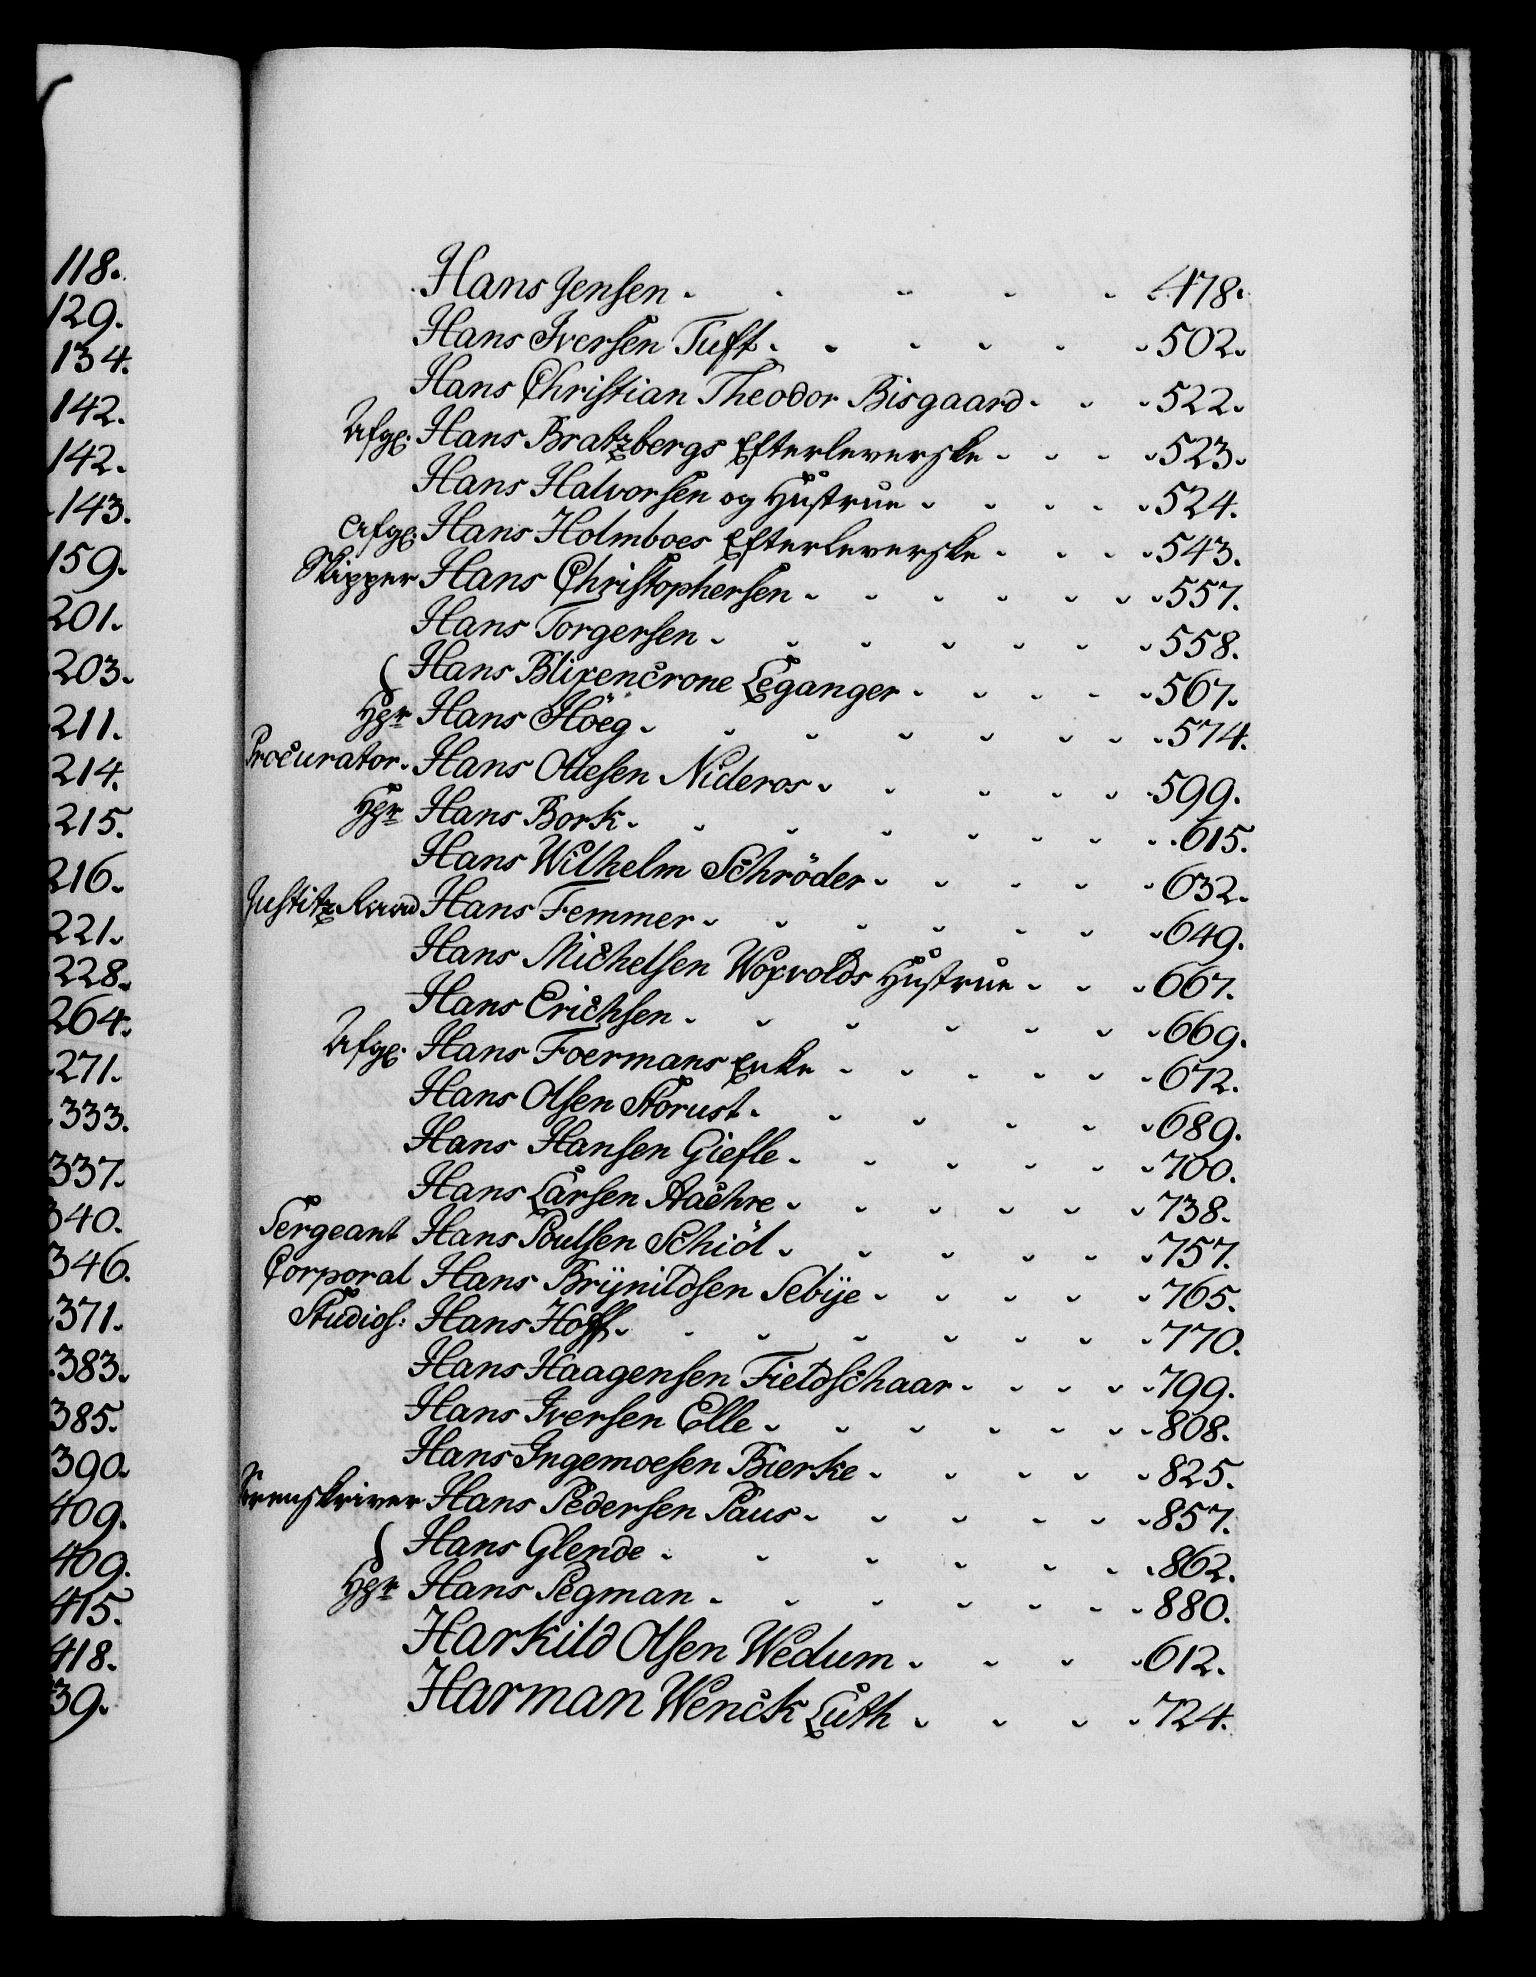 118.
129.
134.
142.
142.
143.
159.
201.
203.
211.
214.
215.
216.
221.
228.
264.
271.
333.
337.
340.
346.
371.
383.
385.
390.
409.
409.
415.
418.
39.
Hans Jensen - - - - - 478.
Hans Iversen Tuft - - - - - - 502.
Hans Christian Theodor Bisgaard - - - 522.
Afg: Hans Bratzbergs Efterleverske - - - - 523.
Hans Halvorsen og Hustrue - - - - - 524.
Afg: Hans Holmboes Efterleverske - - - - 543.
Skipper Hans Christophersen - - - - - - - 557.
Hans Torgersen - - - - - - - 558.
Hans Blixencrone Leganger - - - - - 567.
Hgr Hans Höeg - - - - - - - - 574.
Procurator Hans Olesen Nideros - - - - - 599.
Hgr Hans Bork - - - - - - - - 615.
Hans Wilhelm Schröder - - - - - 632.
Justitz Raad Hans Femmer - - - - - - - 649.
Hans Michelsen Woxvolds Hustrue - - - 667.
Hans Erichsen - - - - - - - 669.
Afg: Hans Foermans Enke - - - - - - 672.
Hans Olsen Storust - - - - - - 689.
Hans Hansen Giefle - - - - - - 700.
Hans Larsen Aachre - - - - - - 738.
Sergeant Hans Poulsen Schiöl - - - - - - 757.
Corporal Hans Brÿnildsen Sebÿe - - - - - 765.
Studios: Hans Hoff - - - - - - - - 770.
Hans Haagensen Fieldschaar - - - - - 799.
Hans Iversen Elle - - - - - - - 808.
Hans Ingemoesen Bierke - - - - - 825.
Sorenskriver Hans Pedersen Paus - - - - - - 857.
Hans Glende - - - - - - 862.
Hgr Hans Pegman - - - - - - - 880.
Harkild Olsen Wedum - - - - 612.
Harman Wenck Luth - - - - 724.